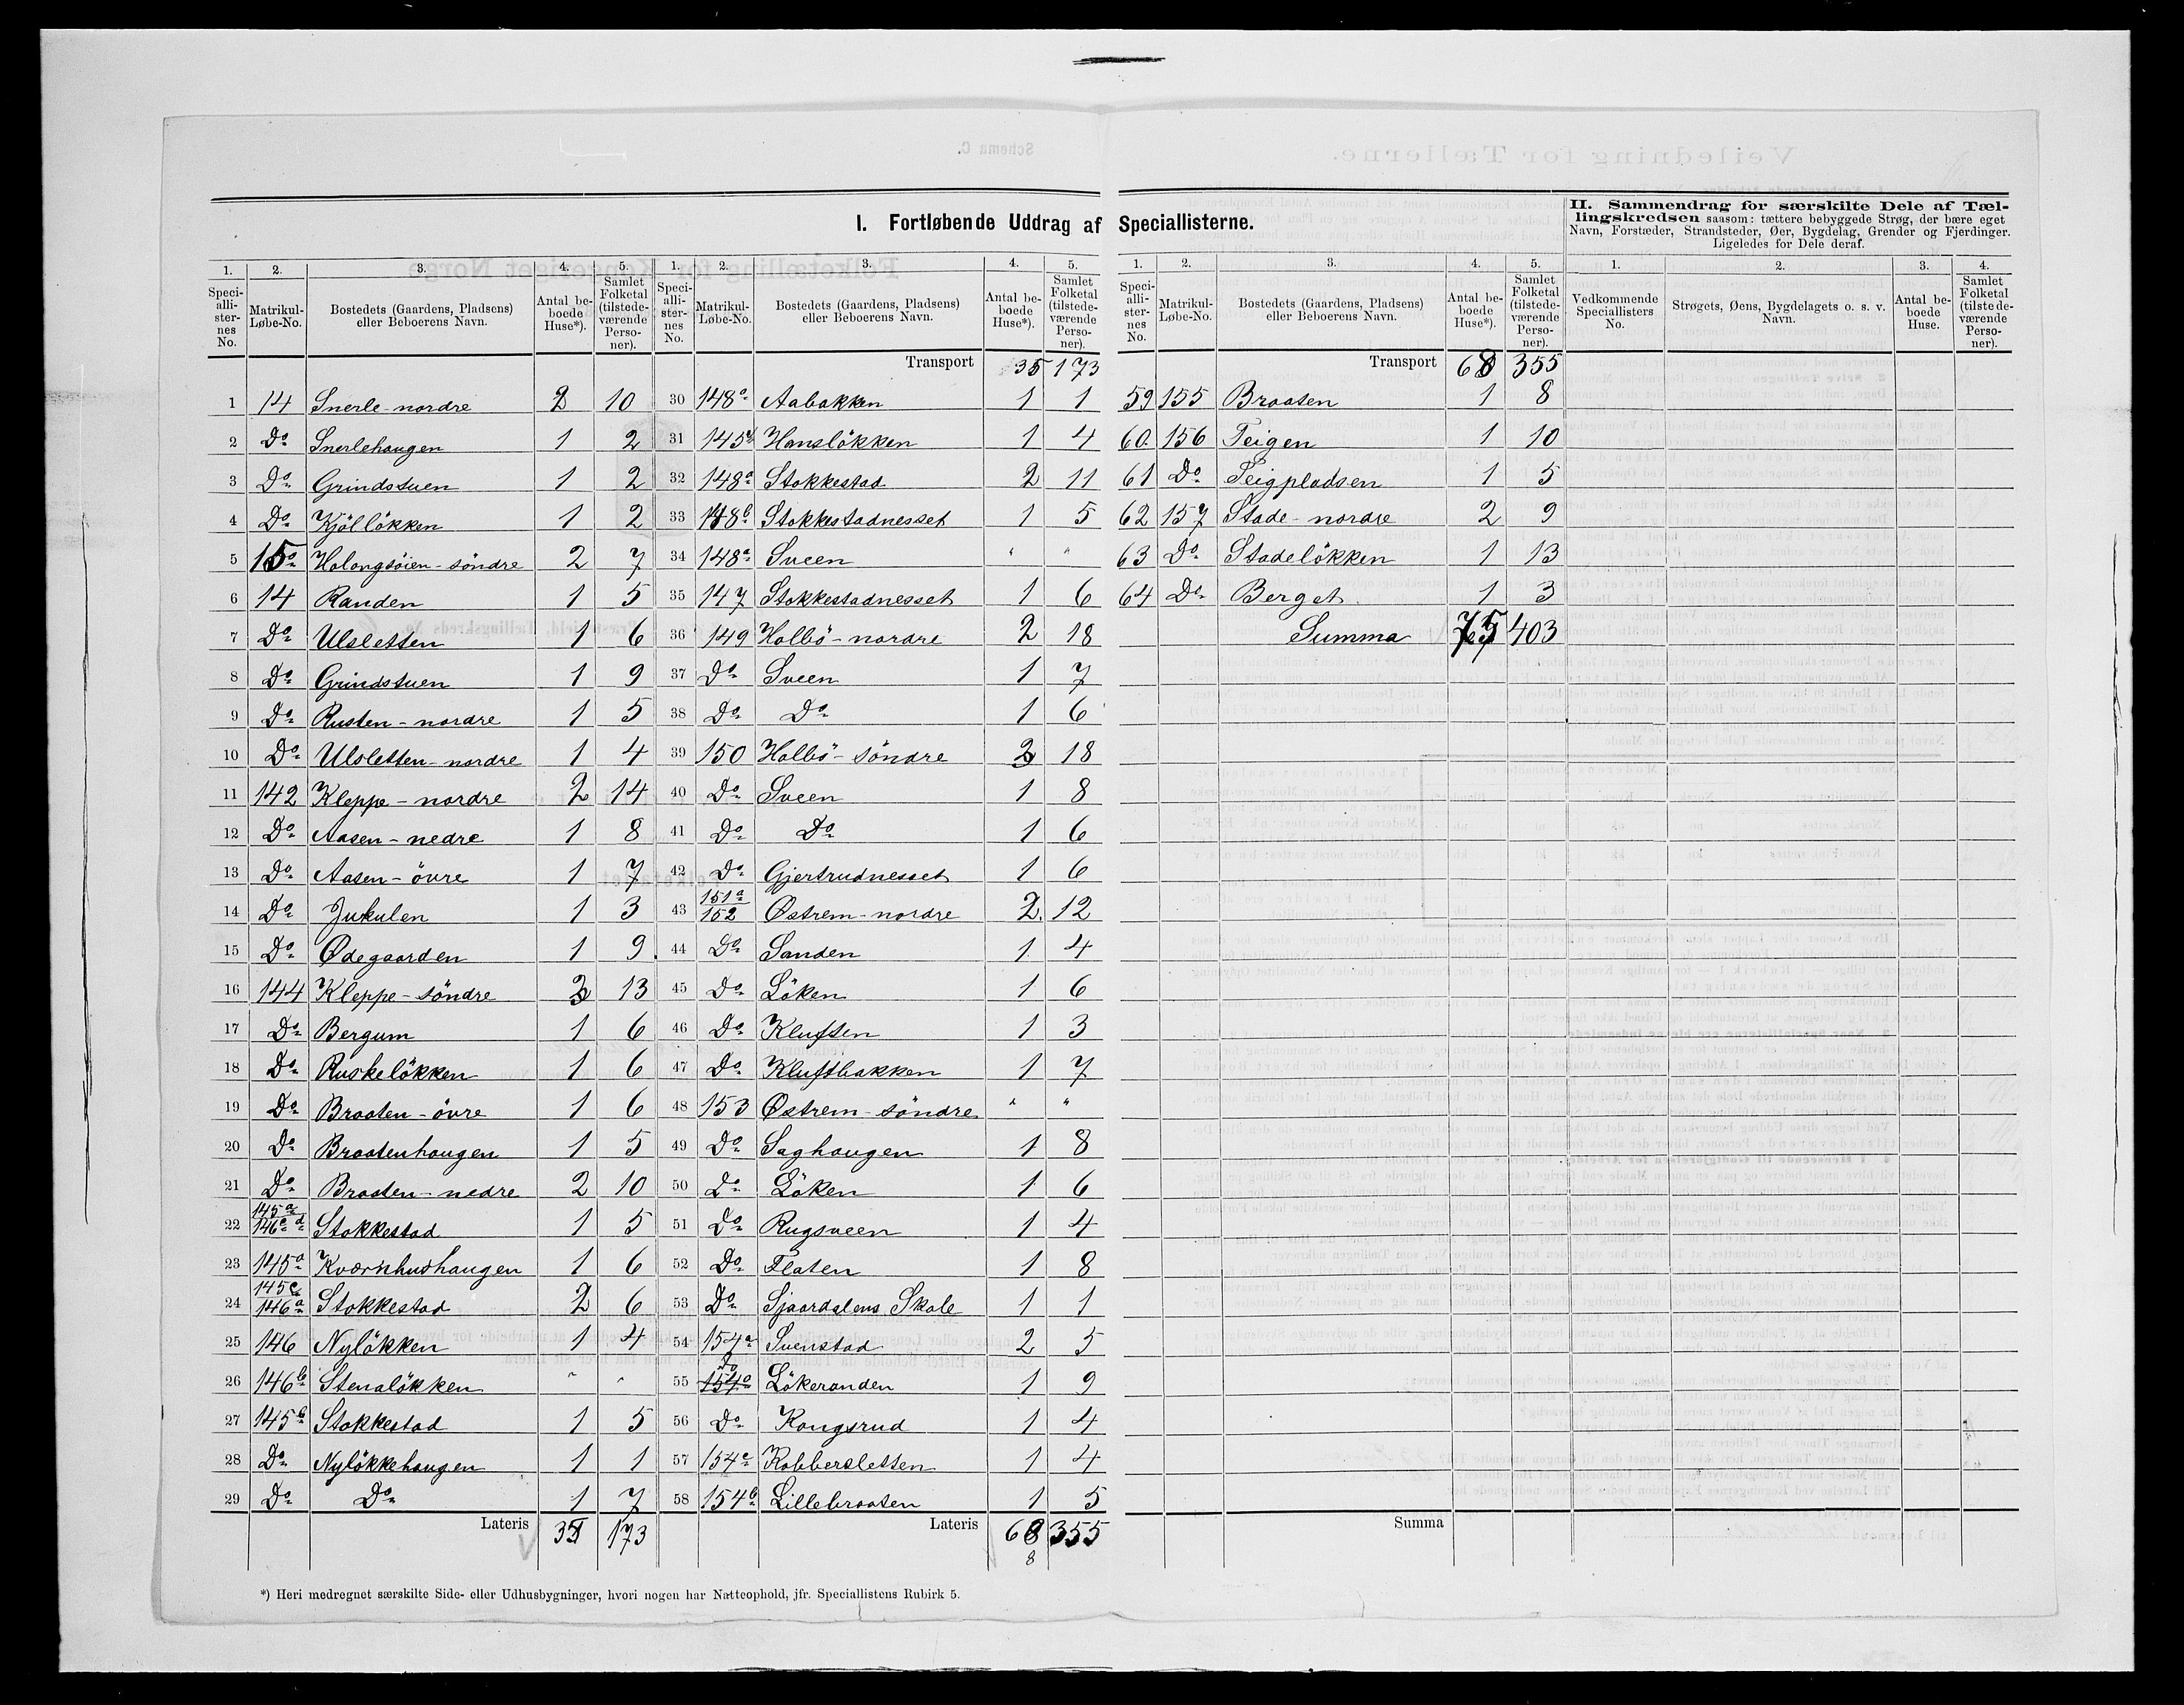 I. Fortløbende Uddrag af Speciallisterne.
1. 2. 3. 4. 5.
Speciallisternes No. Matrikul-Løbe-No. Bostedets (Gaardens, Pladsens) eller Beboerens Navn. Antal beboede Huse*). Samlet Folketal (tilstedeværende Personer).
1 14 Snerle nordre 2 10
2 Do Snerlehaugen 1 2
3 Do Grindstuen 1 2
4 Do Kjöllökken 1 2
5 15a Holongsöien-söndre 2 7
6 14 Randen 1 5
7 Do Ulsletten 1 6
8 Do Grindstuen 1 9
9 Do Rusten-nordre 1 5
10 Do Ulsletten-nordre 1 4
11 142 Kleppe-nordre 2 14
12 Do Aasen-nedre 1 8
13 Do Aasen-övre 1 7
14 Do Jukulen 1 3
15 Do Ødegaarden 1 9
16 144 Kleppe-söndre 2 13
17 Do Bergum 1 6
18 Do Ruskelökken 1 6
19 Do Braaten-övre 1 6
20 Do Braatenhaugen 1 5
21 Do Braaten-nedre 2 10
22 145a 146c d Stokkestad 1 5
23 145a Kværnhushaugen 1 6
24 145c 146a Stokkestad 2 6
25 146 Nylökken 1 4
26 146b Stenalökken " "
27 145b Stokkestad 1 5
28 Do Nylökkehaugen 1 1
29 Do Do 1 7
Lateris 35 173
1. 2. 3. 4. 5.
Speciallisternes No. Matrikul-Løbe-No. Bostedets (Gaardens, Pladsens) eller Beboerens Navn. Antal beboede Huse*). Samlet Folketal (tilstedeværende Personer).
Transport 35 173
30 148a Aabakken 1 1
31 145 Hanslökken 1 4
32 148a Stokkestad 2 11
33 148b Stokkestadnesset 1 5
34 148a Sveen " "
35 147 Stokkestadnesset 1 6
36 149 Holbö-nordre 2 18
37 Do Sveen 1 7
38 Do Do 1 6
39 150 Holbö-söndre 2 18
40 Do Sveen 1 8
41 Do Do 1 6
42 Do Gjertrudnesset 1 6
43 151a 152 Østrem-nordre 2 12
44 Do Sanden 1 4
45 Do Löken 1 6
46 Do Kluften 1 3
47 Do Kluftbakken 1 7
48 153 Østrem-söndre " "
49 Do Saghaugen 1 8
50 Do Löken 1 6
51 Do Rugsveen 1 4
52 Do Flaten 1 8
53 Do Sjaardalens Skole 1 1
54 154a Svenstad 2 5
55 Do Lökeranden 1 9
56 Do Kongsrud 1 4
57 154c Kobbersletten 1 4
58 154b Lillebraaten 1 5
Lateris 68 355
8
1. 2. 3. 4. 5.
Speciallisternes No. Matrikul-Løbe-No. Bostedets (Gaardens, Pladsens) eller Beboerens Navn. Antal beboede Huse*). Samlet Folketal (tilstedeværende Personer).
Transport 68 355
59 155 Braaten 1 8
60. 156 Teigen 1 10
61 Do Teigpladsen 1 5
62 157 Stade-nordre 2 9
63 Do Stadelökken 1 13
64 Do Berget 1 3
Summa 75 403
Summa
II. Sammendrag for særskilte Dele af Tællingskredsen saasom: tættere bebyggede Strøg, der bære eget Navn, Forstæder, Strandsteder, Øer, Bygdelag, Grender og Fjerdinger. Ligeledes for Dele deraf.
1. 2. 3. 4.
Vedkommende Speciallisters No. Strøgets, Øens, Bygdelagets o. s. v. Navn. Antal beboede Huse. Samlet Folketal (tilstedeværende Personer).
*) Heri medregnet særskilte Side- eller Udhusbygninger, hvori nogen har Natteophold, jfr. Speciallistens Rubirk 5.